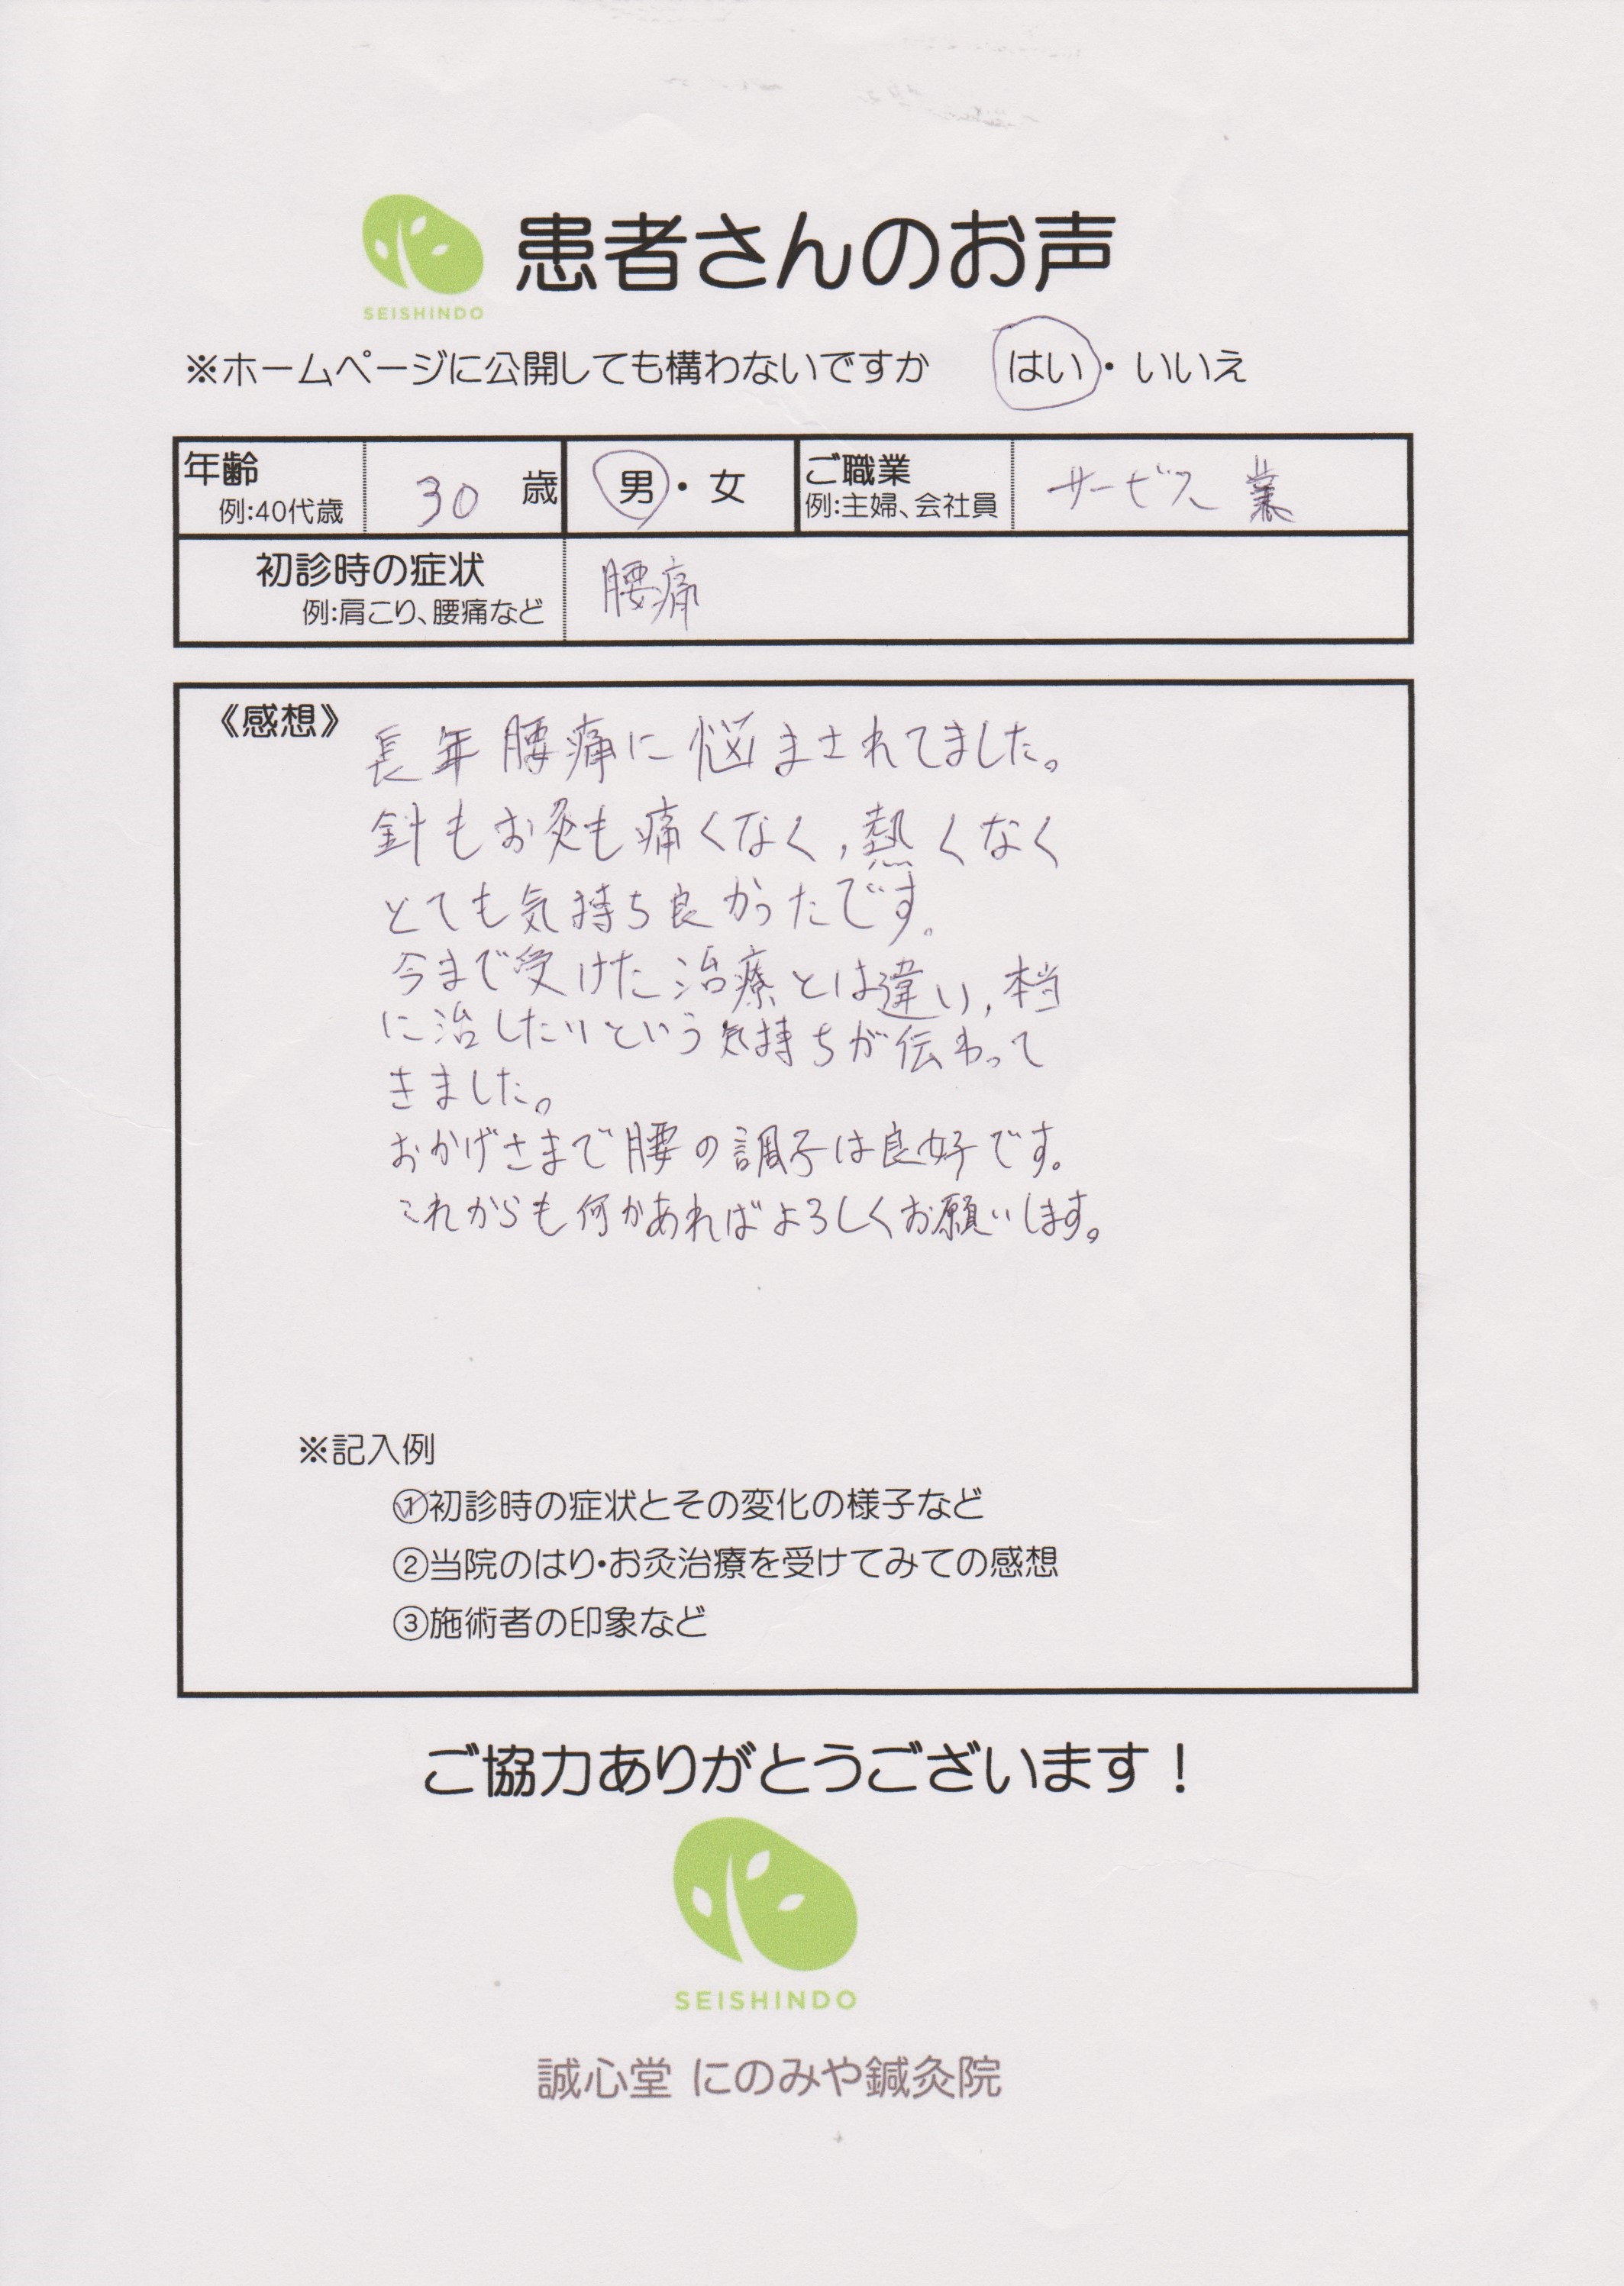 患者さんのお声
SEISHINDO
※ホームページに公開しても構わないですか はい・いいえ
年齢 30 歳 男・女 ご職業 サービス業
例:40代歳 例:主婦、会社員
初診時の症状 腰痛
例:肩こり、腰痛など
《感想》
長年腰痛に悩まされてました。
針もお灸も痛くなく,熱くなく
とても気持ち良かったです。
今まで受けた治療とは違い,本当
に治したいという気持ちが伝わって
きました。
おかげさまで腰の調子は良好です。
これからも何かあればよろしくお願いします。
※記入例
①初診時の症状とその変化の様子など
②当院のはり・お灸治療を受けてみての感想
③施術者の印象など
ご協力ありがとうございます!
SEISHINDO
誠心堂 にのみや鍼灸院